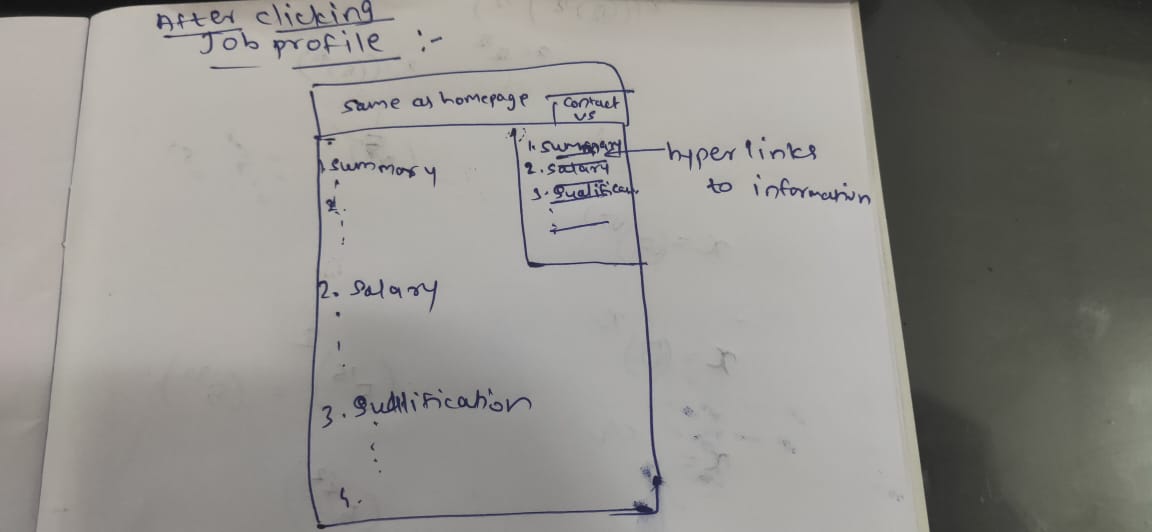 After clicking
Job profile :-
same as homepage
contact
us
1. summary
2. salary
3. Qualifica
hyperlinks
to information
1. summary
2.
2. salary
3. Qualification
4.